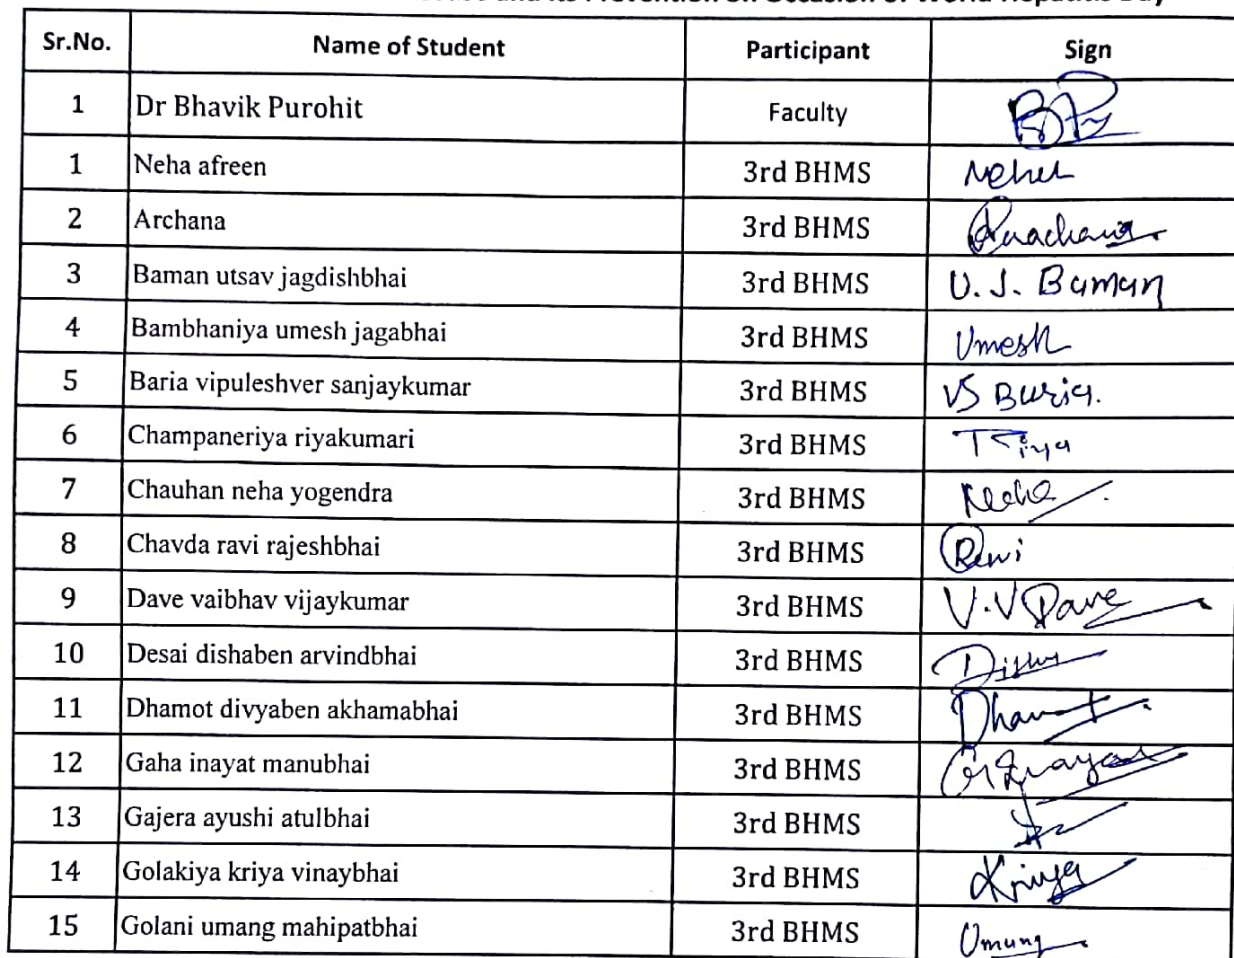 and its Prevention on Occasion of World Hepatitis Day
Sr.No. Name of Student Participant Sign
1 Dr Bhavik Purohit Faculty
1 Neha afreen 3rd BHMS Neha
2 Archana 3rd BHMS
3 Baman utsav jagdishbhai 3rd BHMS U. J. Baman
4 Bambhaniya umesh jagabhai 3rd BHMS Umesh
5 Baria vipuleshver sanjaykumar 3rd BHMS VS Baria.
6 Champaneriya riyakumari 3rd BHMS Riya
7 Chauhan neha yogendra 3rd BHMS Neha
8 Chavda ravi rajeshbhai 3rd BHMS Ravi
9 Dave vaibhav vijaykumar 3rd BHMS V.V Dave
10 Desai dishaben arvindbhai 3rd BHMS
11 Dhamot divyaben akhamabhai 3rd BHMS Dhamot
12 Gaha inayat manubhai 3rd BHMS
13 Gajera ayushi atulbhai 3rd BHMS
14 Golakiya kriya vinaybhai 3rd BHMS Kriya
15 Golani umang mahipatbhai 3rd BHMS Umang